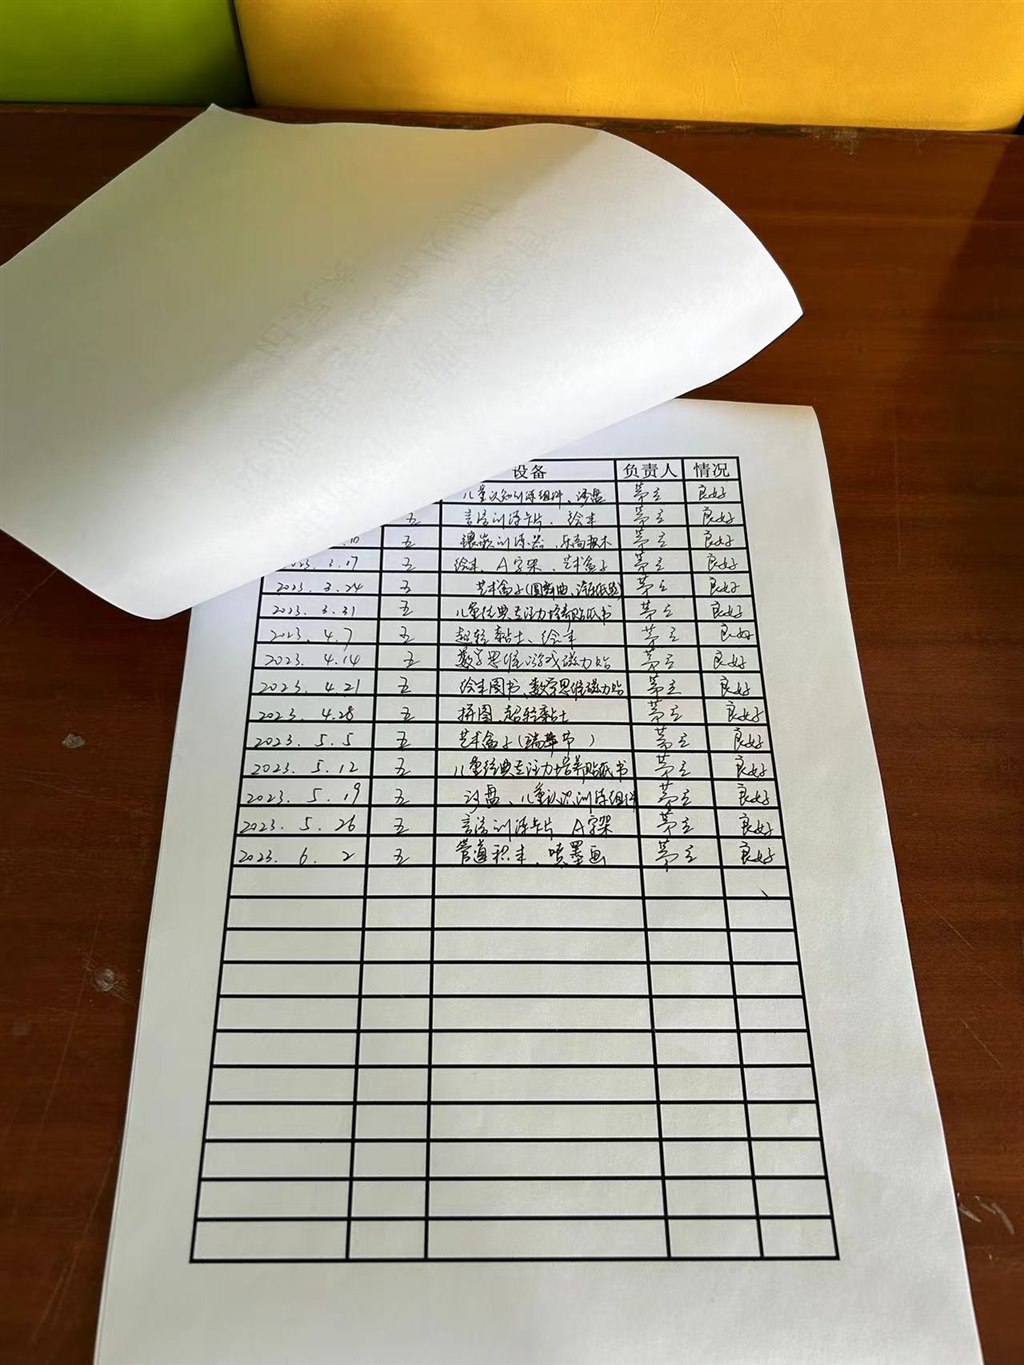 设备 负责人 情况
儿童认知训练组件、沙盘 茅立 良好
五 言语训练卡片、绘本 茅立 良好
五 镶嵌训练器、乐高积木 茅立 良好
3.17 五 绘本、A字架、艺术盒子 茅立 良好
2023.3.24 五 艺术盒子( 茅立 良好
2023.3.31 五 儿童经典专注力培养贴纸书 茅立 良好
2023.4.7 五 超轻黏土、绘本 茅立 良好
2023.4.14 五 数字思维游戏磁力贴 茅立 良好
2023.4.21 五 绘本图书、数字思维磁力贴 茅立 良好
2023.4.28 五 拼图、超轻黏土 茅立 良好
2023.5.5 五 艺术盒子(端午节) 茅立 良好
2023.5.12 五 儿童经典专注力培养贴纸书 茅立 良好
2023.5.19 五 沙盘、儿童认识训练组件 茅立 良好
2023.5.26 五 言语训练卡片、A字架 茅立 良好
2023.6.2 五 管道积木、喷墨画 茅立 良好